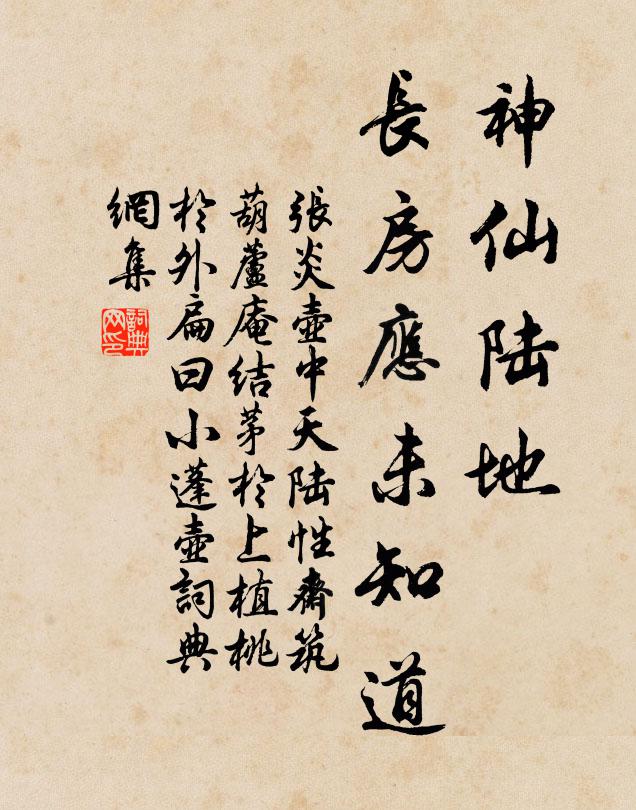 神仙陆地
長房應未知道
張炎壺中天陆性齋筑
葫蘆庵结茅於上植桃
於外扁曰小蓬壺詞典
網集
詞典
网印